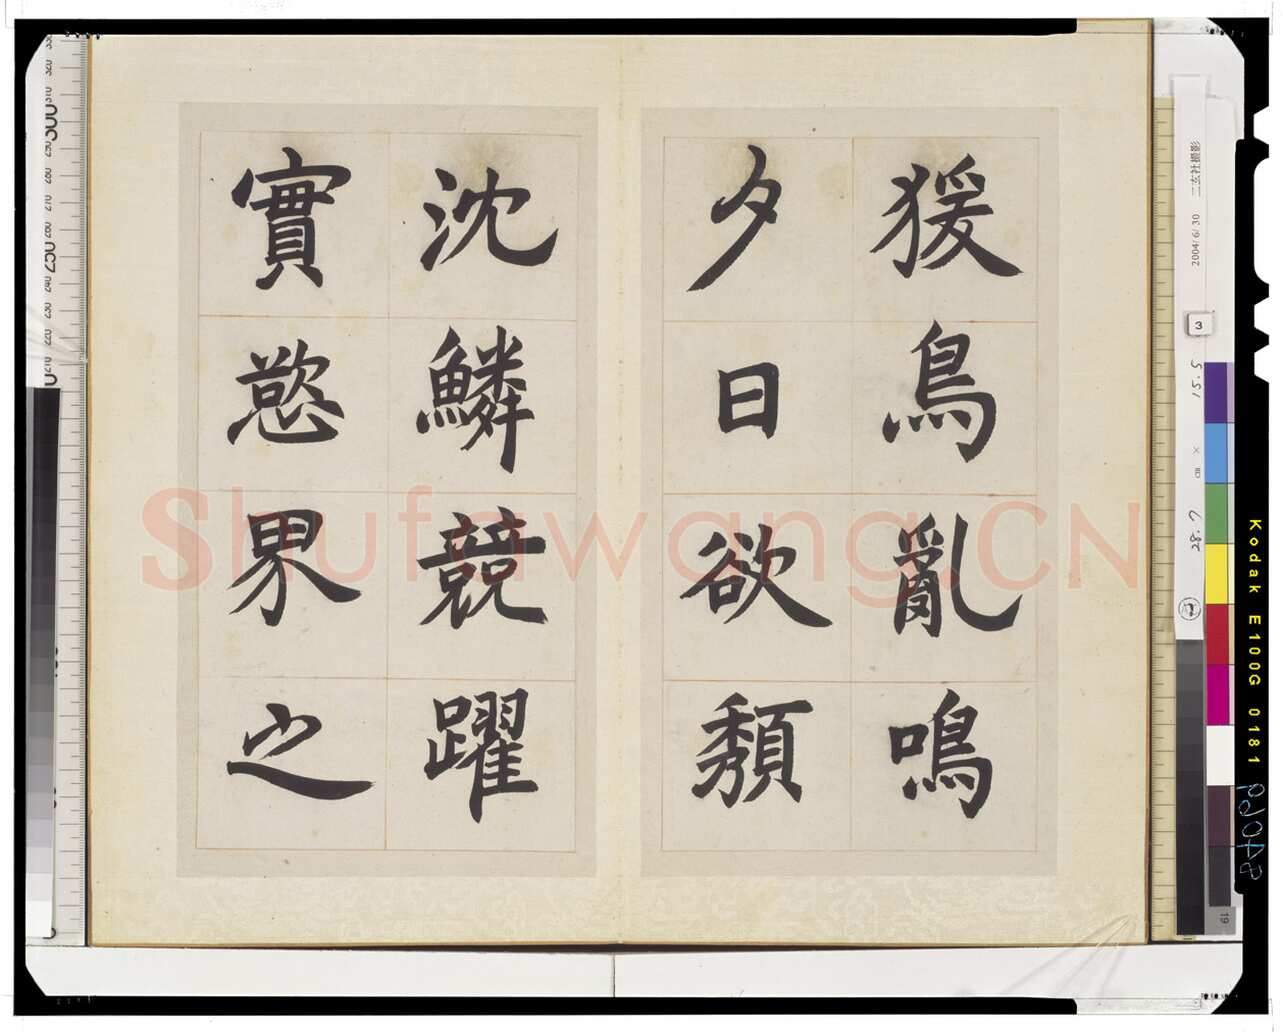 猨鳥亂鳴
夕日欲頹
沈鱗競躍
實慾界之
Shufawang.CN
二玄社撮影
2004/6/30
3
15.5
×
cm
28.7
Kodak E100G 0181
19